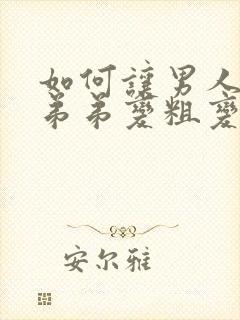 如何讓男人
弟弟變粗變
安尔雅